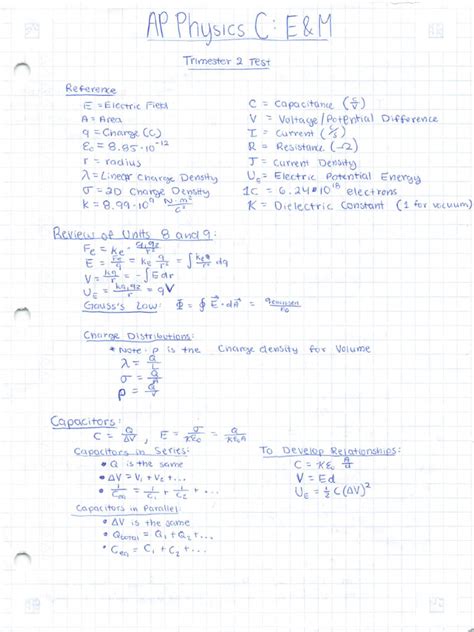 AP Physics C: E&M
Trimester 2 Test
Reference
E = Electric Field
A = Area
q = Charge (C)
ε₀ = 8.85·10⁻¹²
r = radius
λ = Linear Charge Density
σ = 2D Charge Density
k = 8.99·10⁹ N·m²/C²
C = Capacitance
V = Voltage/Potential Difference
I = Current
R = Resistance (Ω)
J = Current Density
U = Electric Potential Energy
1C = 6.24·10¹⁸ electrons
K = Dielectric Constant (1 for vacuum)
Review of Units 8 and 9:
Gauss's Law: Φ = ∮ E⃗·dA⃗ =
Charge Distributions:
* Note: ρ is the Charge density for Volume
λ = Q/L
σ = Q/A
ρ = Q/V
Capacitors:
C = Q/ΔV , E = σ/Kε₀ = Q/Kε₀A
Capacitors in Series:
• Q is the same
• ΔV = V₁ + V₂ + ...
= 1/C₁ + 1/C₂ + ...
Capacitors in Parallel:
• ΔV is the same
• Q = Q₁ + Q₂ + ...
• C = C₁ + C₂ + ...
To Develop Relationships:
C = Kε₀ A/d
V = Ed
U = ½ C(ΔV)²